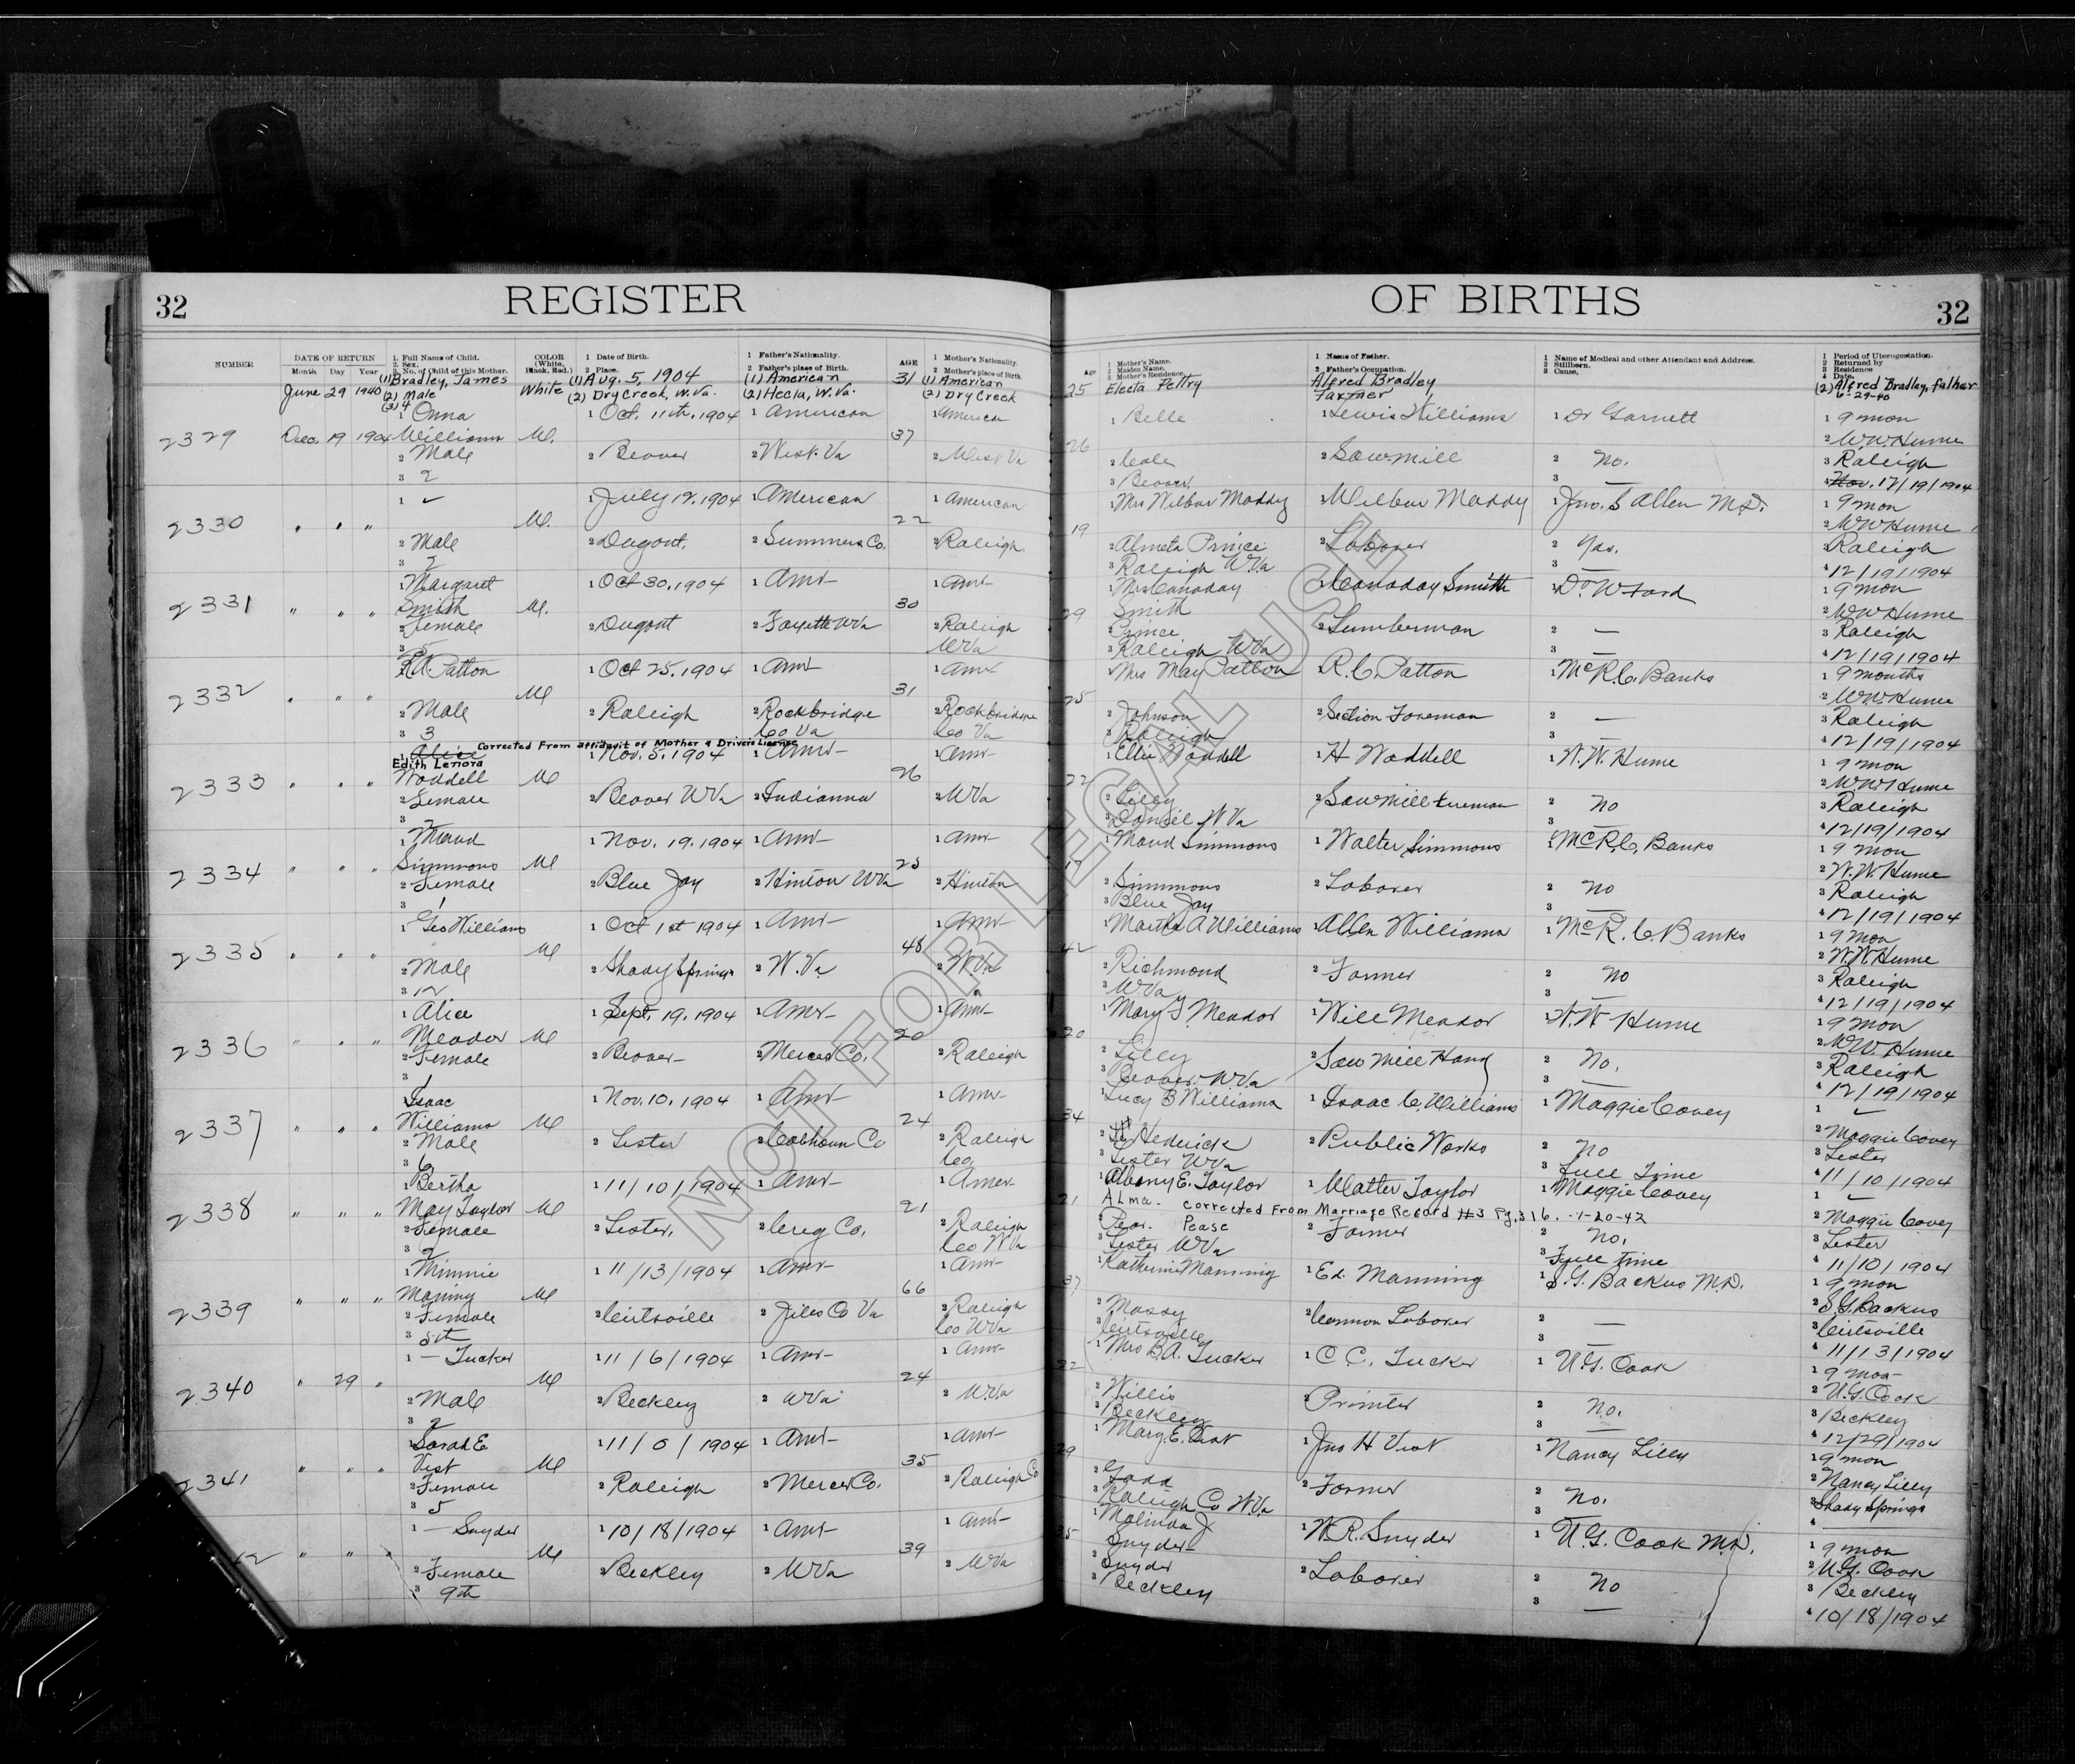 32 REGISTER OF BIRTHS 32
NUMBER
DATE OF RETURN
Month Day Year
1. Full Name of Child.
2. Sex.
3. No. of Child of this Mother.
COLOR
(White, Black, Red.)
1 Date of Birth.
2 Place.
1 Father's Nationality.
2 Father's place of Birth.
AGE
1 Mother's Nationality.
2 Mother's place of Birth.
Age
1 Mother's Name.
2 Maiden Name.
3 Mother's Residence.
1 Name of Father.
2 Father's Occupation.
1 Name of Medical and other Attendant and Address.
2 Stillborn.
3 Cause.
1 Period of Uterogestation.
2 Returned by
3 Residence
4 Date.
June 29 1940 (1) Bradley, James White (1) Aug. 5, 1904 (1) American 31 (1) American 25 Electa Pettry Alfred Bradley (2) Alfred Bradley, father
(2) Male (2) Dry Creek, W. Va. (2) Hecla, W. Va. (2) Dry Creek Farmer 6-29-40
(3) 4
1 Onna 1 Oct. 11th, 1904 1 American 1 American 1 Belle 1 Lewis Williams 1 Dr Garnett 1 9 mon
2329 Dec. 19 1904 Williams W. 37 26 2 W.W. Hume
2 Male 2 Beaver 2 West. Va 2 West Va 2 Cole 2 Sawmill 2 No. 3 Raleigh
3 2 3 Beaver 3 — 4 Nov. 12/19/1904
1 ✓ 1 July 12, 1904 1 American 1 American 1 Mrs Wilbur Maddy 1 Wilbur Maddy 1 Jno. S Allen M.D. 1 9 mon
2330 " " " W. 22 19 2 W W Hume
2 Male 2 Dugout. 2 Summers Co. 2 Raleigh 2 Almeta Prince 2 Laborer 2 Yes. 3 Raleigh
3 2 3 Raleigh W.Va 3 — 4 12/19/1904
1 Margaret 1 Oct 30, 1904 1 Amr 1 Amr 1 Mrs Canaday 1 Canaday Smith 1 Dr. Ward 1 9 mon
2331 " " " Smith W. 30 29 Smith 2 W W Hume
2 Female 2 Dugout 2 Fayette W Va 2 Raleigh 2 Prince 2 Lumberman 2 — 3 Raleigh
3 5 W Va 3 Raleigh W Va 3 — 4 12/19/1904
R.A. Patton 1 Oct 25, 1904 1 Amr 1 Amr 1 Mrs May Patton R. C. Patton 1 McR. C. Banks 1 9 months
2332 " " " W 31 25 2 W.W. Hume
2 Male 2 Raleigh 2 Rockbridge 2 Rockbridge 2 Johnson 2 Section Foreman 2 — 3 Raleigh
3 3 Co Va Co Va 3 Raleigh 3 — 4 12/19/1904
Corrected From affidavit of Mother & Drivers License
1 Alice 1 Nov. 5, 1904 1 Amr 1 Amr 1 Ellie Waddell 1 H Waddell 1 W. W. Hume 1 9 mon
Edith Lenora
2333 " " " Waddell W 26 22 2 W W Hume
2 Female 2 Beaver W Va 2 Indianna 2 W Va 2 Lilly 2 Sawmill Foreman 2 No 3 Raleigh
3 2 3 Daniel W Va 3 — 4 12/19/1904
1 Maud 1 Nov. 19. 1904 1 Amr 1 Amr 1 Maud Simmons 1 Walter Simmons 1 McR. C. Banks 1 9 mon
2334 " " " Simmons W 25 2 W. W. Hume
2 Female 2 Blue Jay 2 Hinton W Va 2 Hinton 2 Simmons 2 Laborer 2 No 3 Raleigh
3 1 3 Blue Jay 3 — 4 12/19/1904
1 Geo Williams 1 Oct 1st 1904 1 Amr 1 Amr 1 Martha A Williams 1 Allen Williams 1 McR. C. Banks 1 9 mon
2335 " " " W 48 42 2 W. W Hume
2 Male 2 Shady Springs 2 W. Va 2 W. Va 2 Richmond 2 Farmer 2 No 3 Raleigh
3 12 3 W Va 3 — 4 12/19/1904
1 Alice 1 Sept. 19. 1904 1 Amr 1 Amr 1 Mary J Meador 1 Will Meador 1 W. W Hume 1 9 mon
2336 " " " Meador W 20 20 2 W W. Hume
2 Female 2 Beaver 2 Mercer Co. 2 Raleigh 2 Lilly 2 Saw Mill Hand 2 No. 3 Raleigh
3 1 3 Beaver. W.Va 3 — 4 12/19/1904
Isaac 1 Nov. 10. 1904 1 Amr 1 Amr Lucy B Williams 1 Isaac C. Williams 1 Maggie Covey 1 ✓
2337 " " " Williams W 24 34 2 Maggie Covey
2 Male 2 Lester 2 Calhoun Co 2 Raleigh 2 Hedrick 2 Public Works 2 No 3 Lester
3 6 Co. 3 Lester W Va 3 Full Time 4 11/10/1904
1 Bertha 1 11/10/1904 1 Amr 1 Amer 1 Albany E. Taylor 1 Walter Taylor 1 Maggie Covey 1 ✓
2338 " " " May Taylor W 21 21 Alma. Corrected From Marriage Record #3 Pg. 316. -1-20-42 2 Maggie Covey
2 Female 2 Lester, 2 Creg Co. 2 Raleigh Pear. Pease 2 Farmer 2 No. 3 Lester
3 2 Co W Va 3 Lester W Va 3 Full time 4 11/10/1904
1 Minnie 1 11/13/1904 1 Amr 1 Amr 1 Katherine Manning 1 Ed. Manning 1 S. G. Backus M.D. 1 9 mon
2339 " " " Maning W 66 37 2 S. G. Backus
2 Female 2 Cirtsville 2 Jiles Co Va 2 Raleigh 2 Massy 2 Common Laborer 2 — 3 Cirtsville
3 8th Co W Va 3 Cirtsville 3 — 4 11/13/1904
1 — Tucker 1 11/6/1904 1 Amr 1 Amr 1 Mrs B.A. Tucker 1 C C. Tucker 1 U. G. Cook 1 9 mon
2340 " 29 " W 24 22 2 U. G. Cook
2 Male 2 Beckley 2 W Va 2 W.Va 2 Willis 2 Printer 2 No. 3 Beckley
3 2 3 Beckley 3 — 4 12/29/1904
1 Sarah E. 1 11/0/1904 1 Amr 1 Amr 1 Mary. E. Vest 1 Jno H Vest 1 Nancy Lilly 1 9 mon
2341 " " " Vest W 35 29 2 Nancy Lilly
2 Female 2 Raleigh 2 Mercer Co. 2 Raleigh Co 2 Gadd 2 Farmer 2 No. 3 Shady Springs
3 5 3 Raleigh Co W.Va 3 4 —
1 — Snyder 1 10/18/1904 1 Amr 1 Amr 1 Malinda J 1 W. R. Snyder 1 U. G. Cook M.D. 1 9 mon
" " " W 39 35 Snyder 2 U. G. Cook
2 Female 2 Beckley 2 W Va 2 W Va 2 Snyder 2 Laborer 2 No 3 Beckley
3 9th 3 Beckley 3 — 4 10/18/1904
NOT FOR LEGAL USE